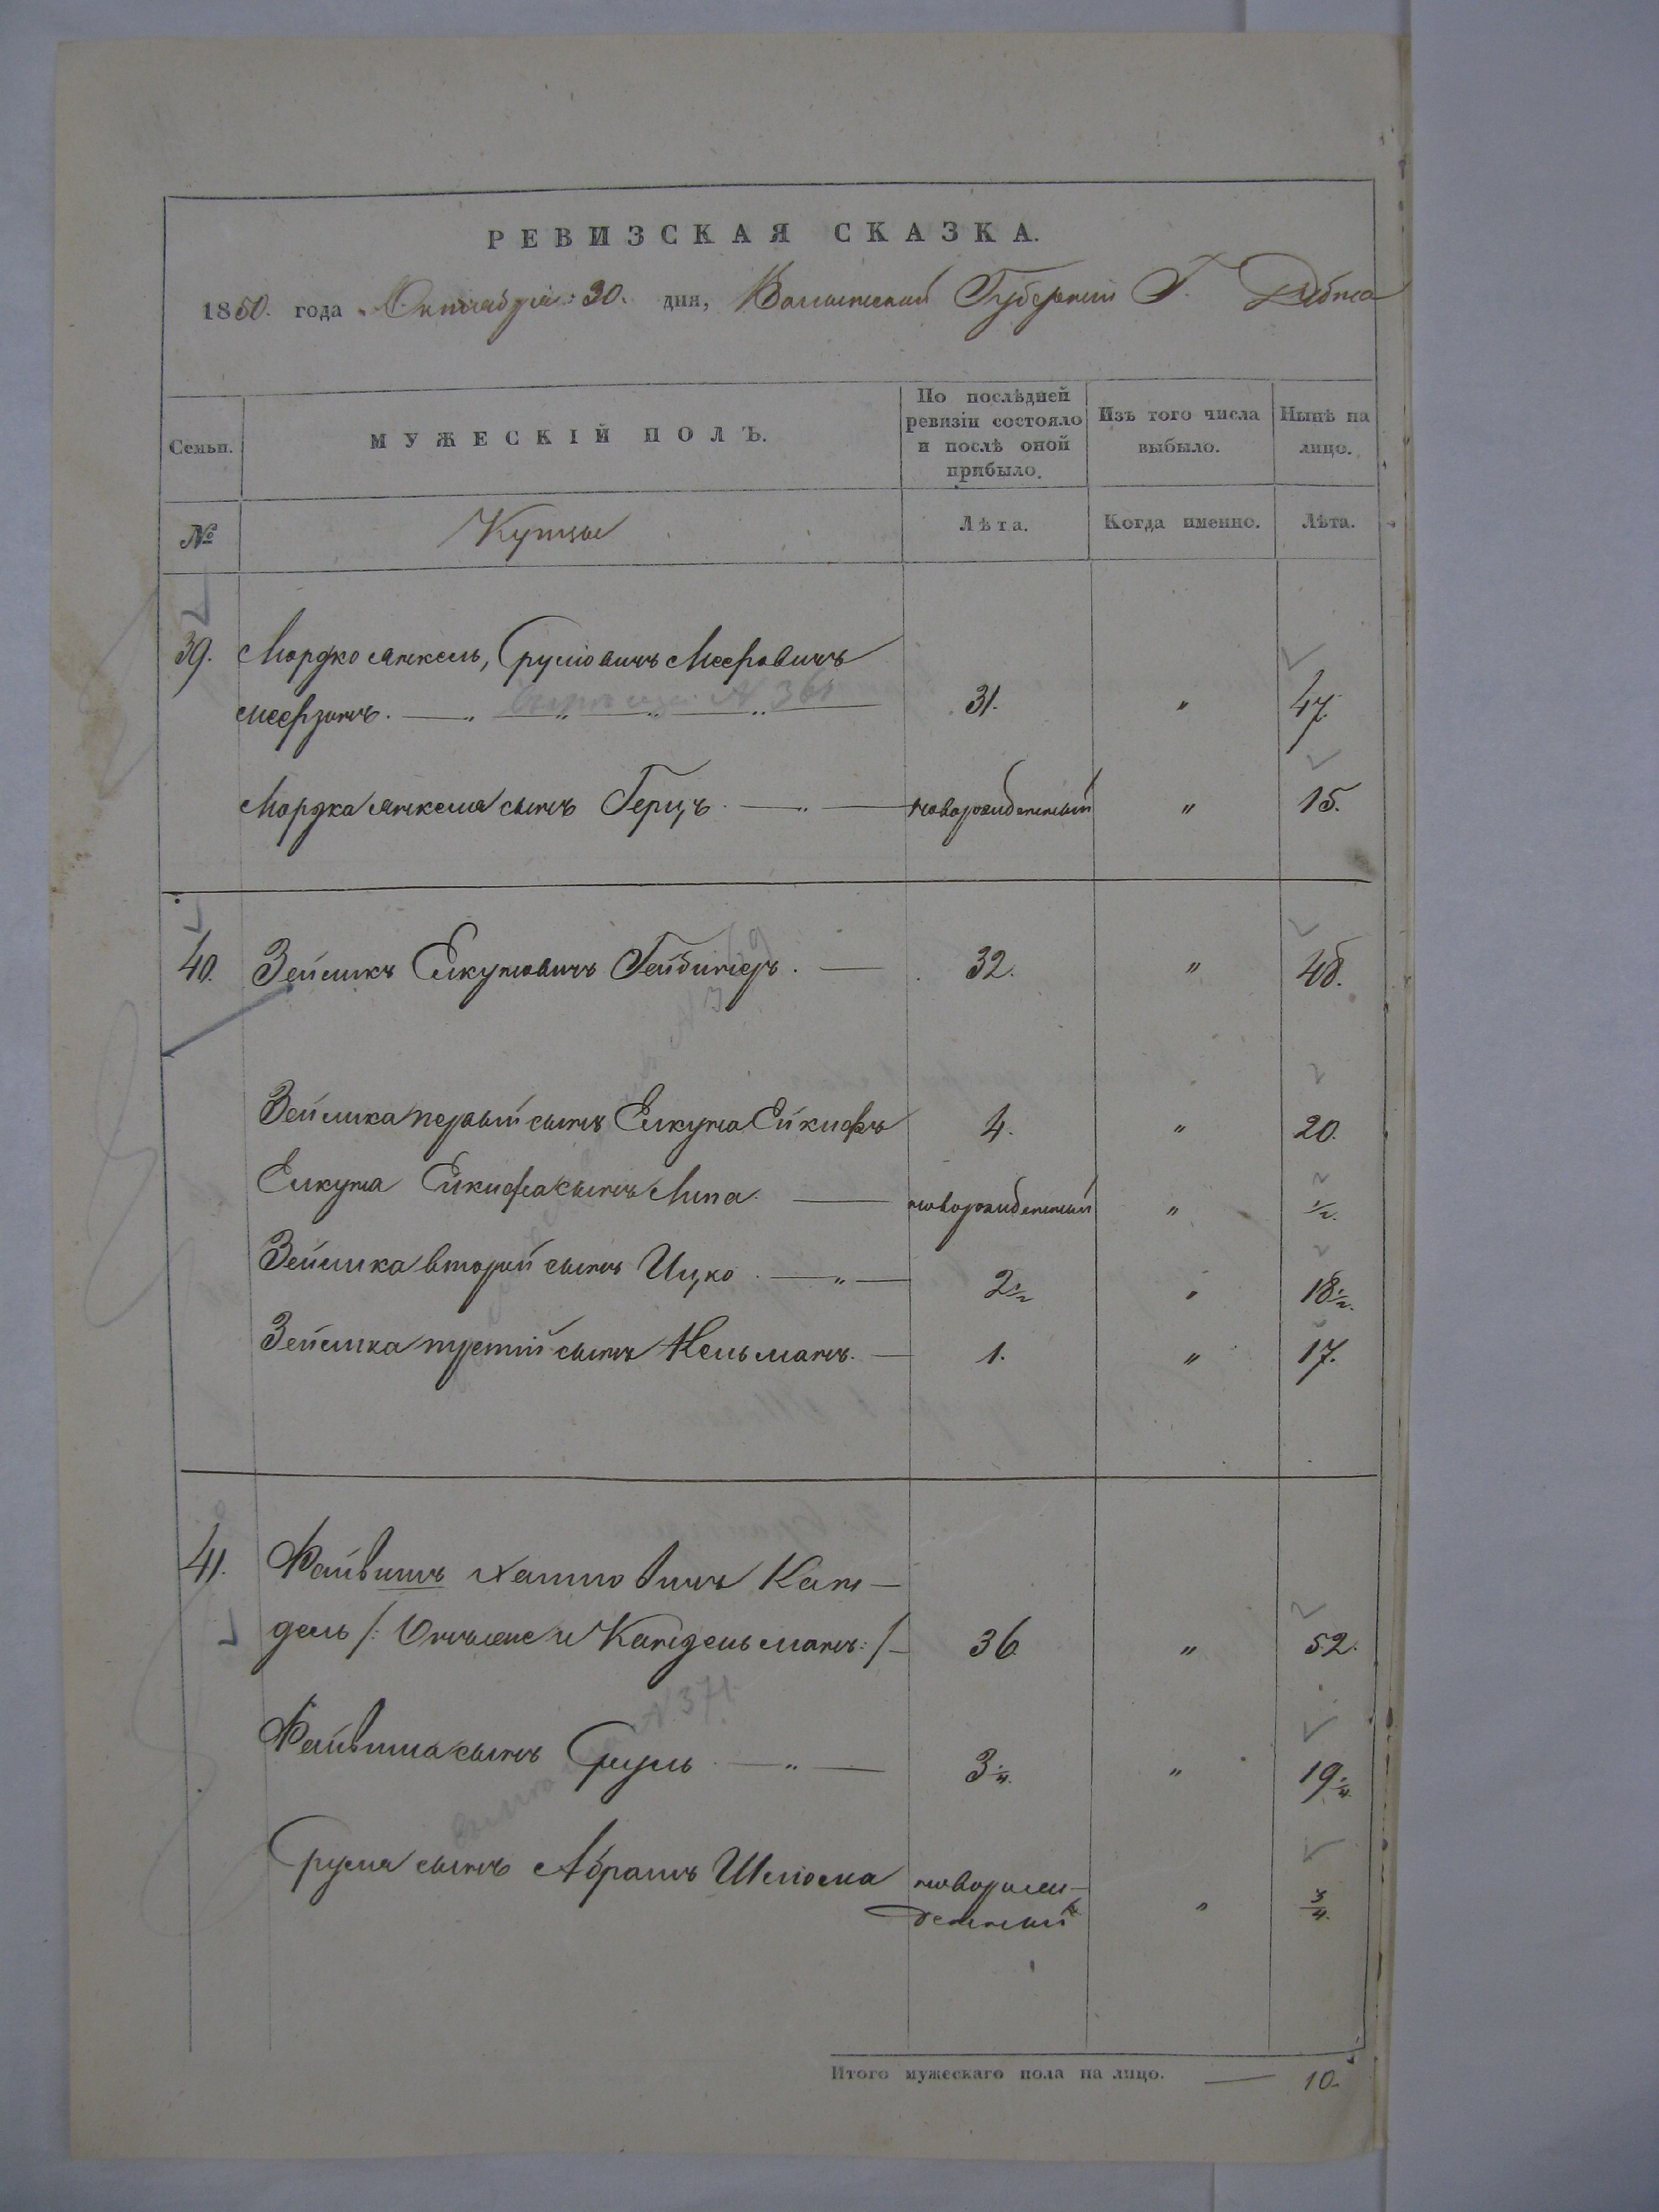 РЕВИЗСКАЯ СКАЗКА.
1850. года Октября 30. дня, Волынской Губернии Г. Дубна
Семьи. МУЖЕСКІЙ ПОЛЪ. По послѣдней ревизіи состояло и послѣ оной прибыло. Изъ того числа выбыло. Нынѣ на лицо.
№ Купцы Лѣта. Когда именно. Лѣта.
39. Мордко Анкель, Сруловичъ Мееровичъ
Меерзонъ. — „ — „ — „ — „ — 31. „ 47.
№ 361
Мордка Анкеля сынъ Герцъ — „ — новорожденный „ 15.
40. Зейликъ Елкуновичъ — 32. „ 48.
Зейлика первый сынъ Елкуна 4. „ 20.
Елкуна сынъ Липа. — новорожденный „ ½.
Зейлика второй сынъ Ицко — „ — 2½ „ 18½.
Зейлика третій сынъ Кельманъ. — 1. „ 17.
41. Файвишъ Хаимовичъ Кан-
дель /: Онъ же и Кандельманъ :/ — 36 „ 52.
№ 371.
Файвиша сынъ Сруль — „ — 3¼. „ 19¼.
Сруля сынъ Абрамъ Шлиома новорож-
денный „ ¾.
Итого мужескаго пола на лицо. — 10.